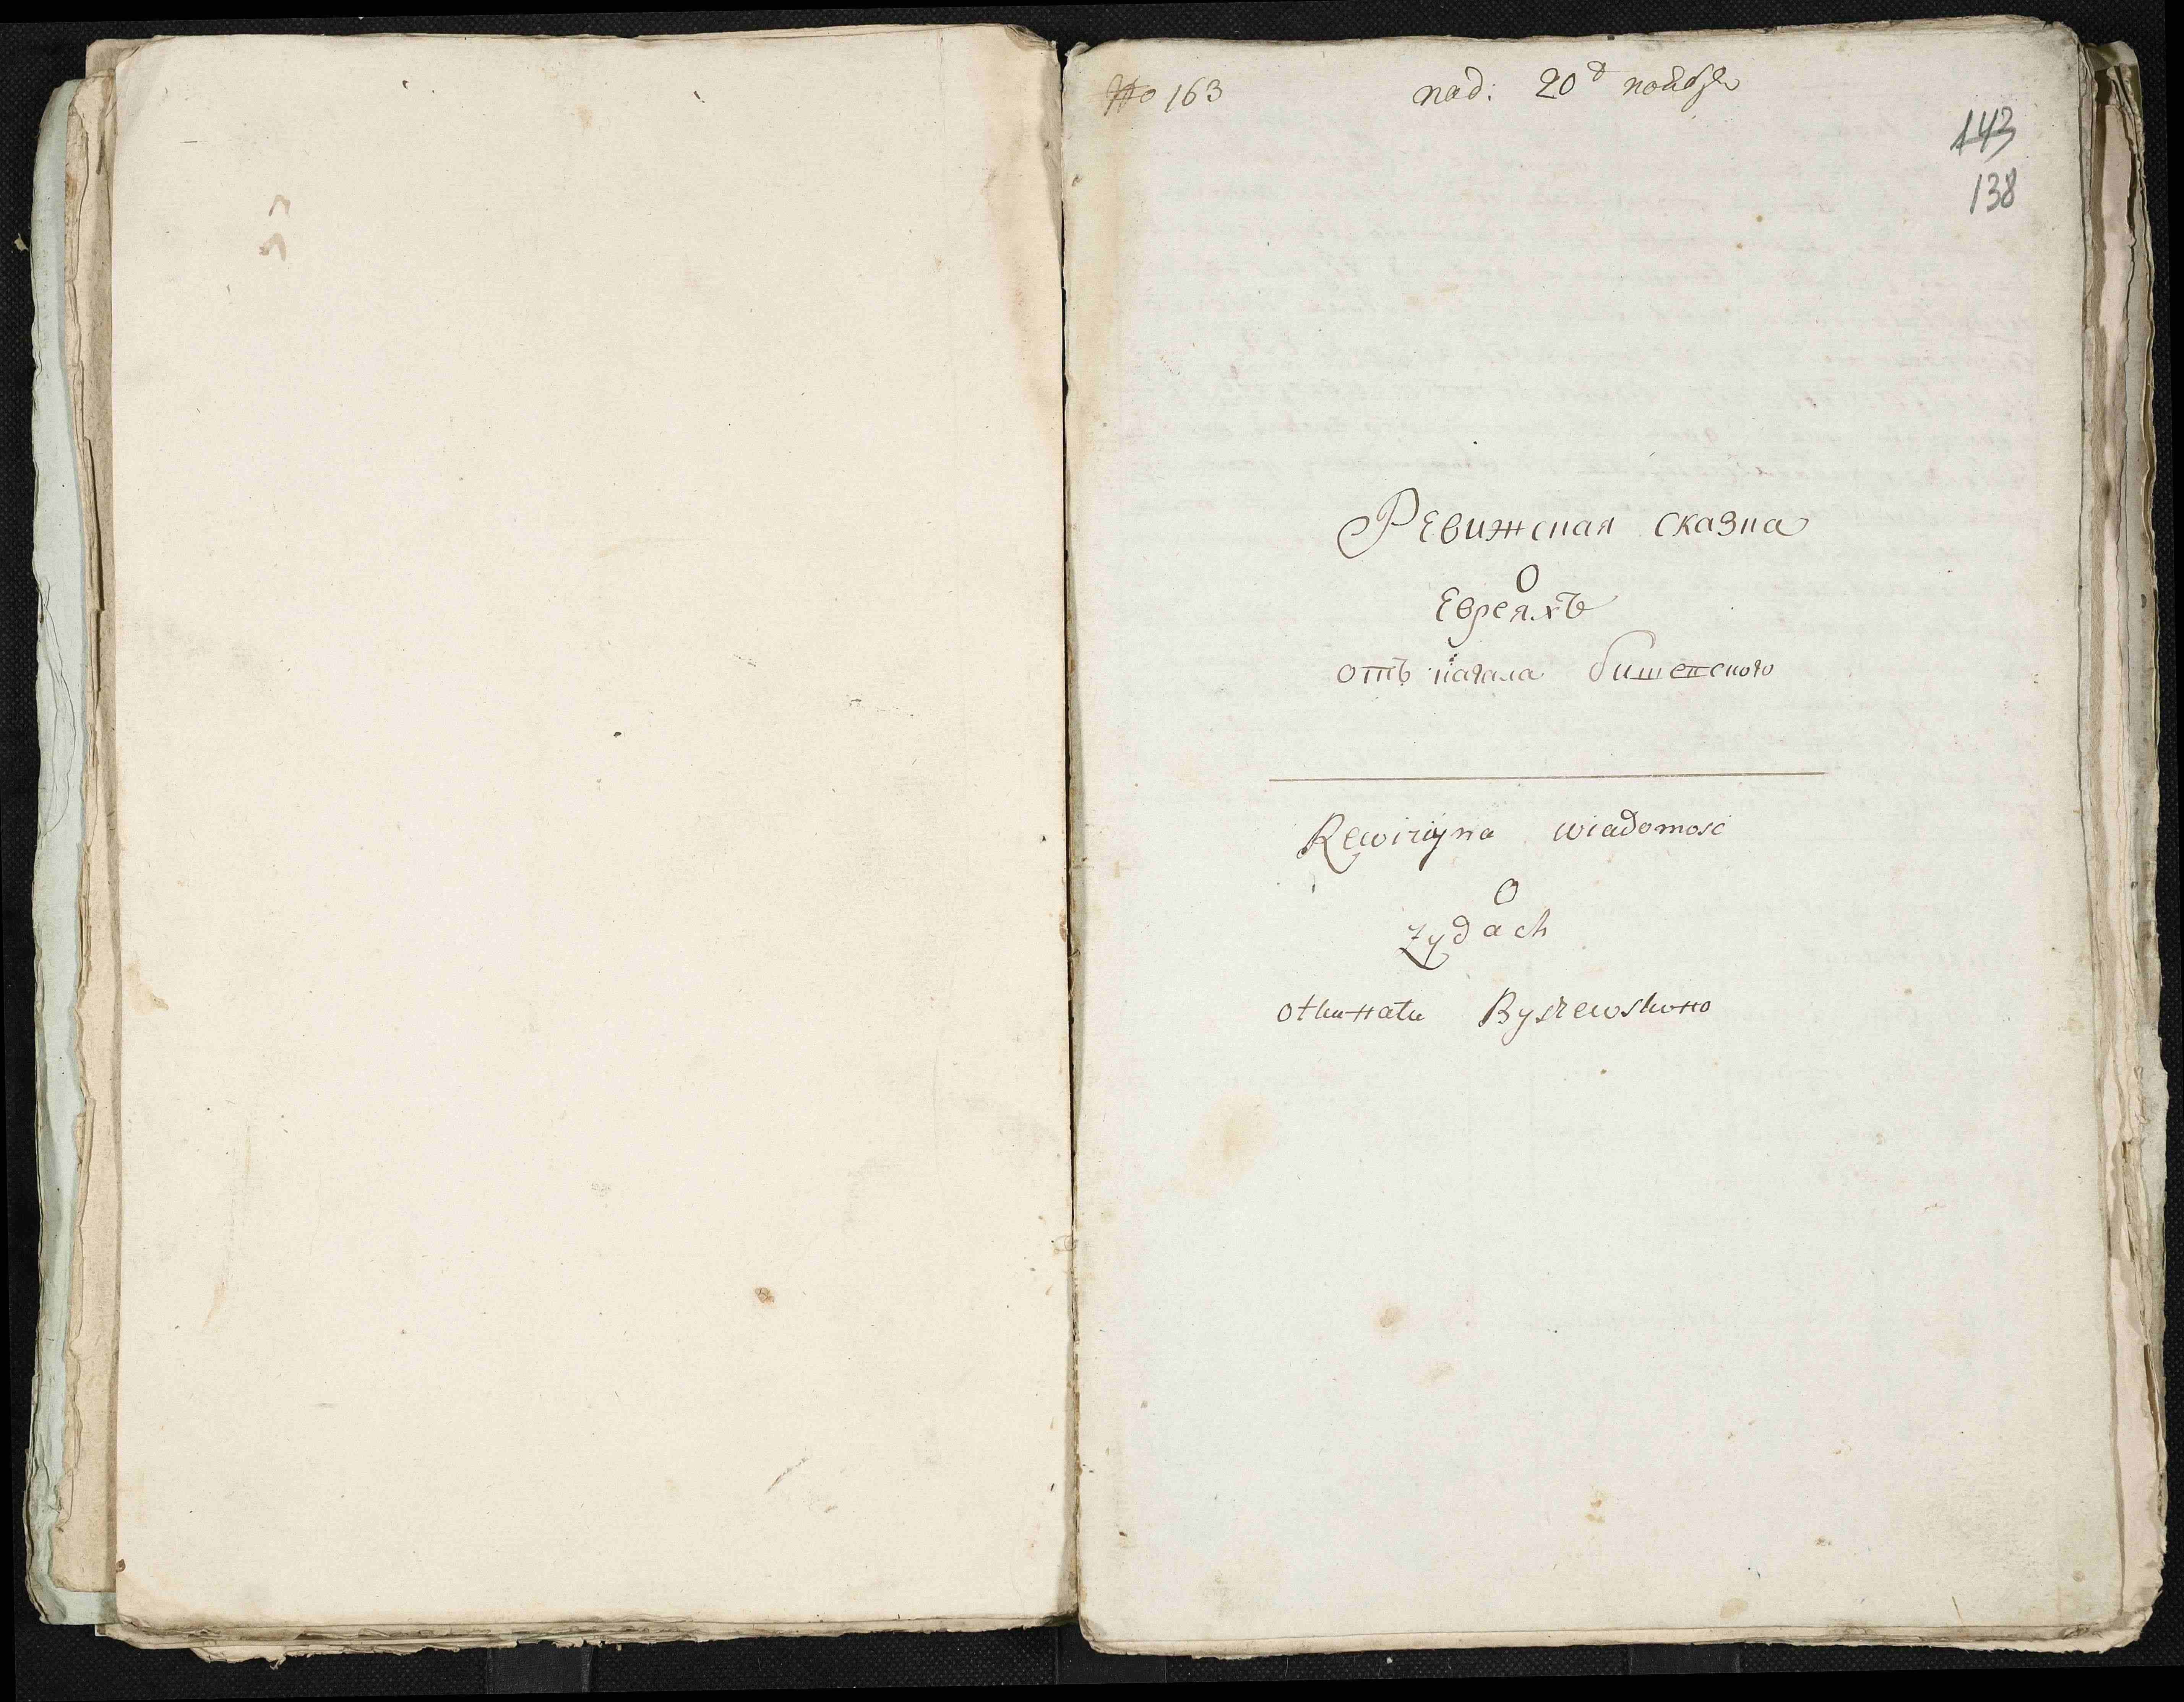 No 163 пад: 20д ноября
143
138
Ревижская сказка
О
Евреяхъ
отъ кагала бишевского
Rewizijna wiadomosc
O
zydach
othahatu Byszewskoho